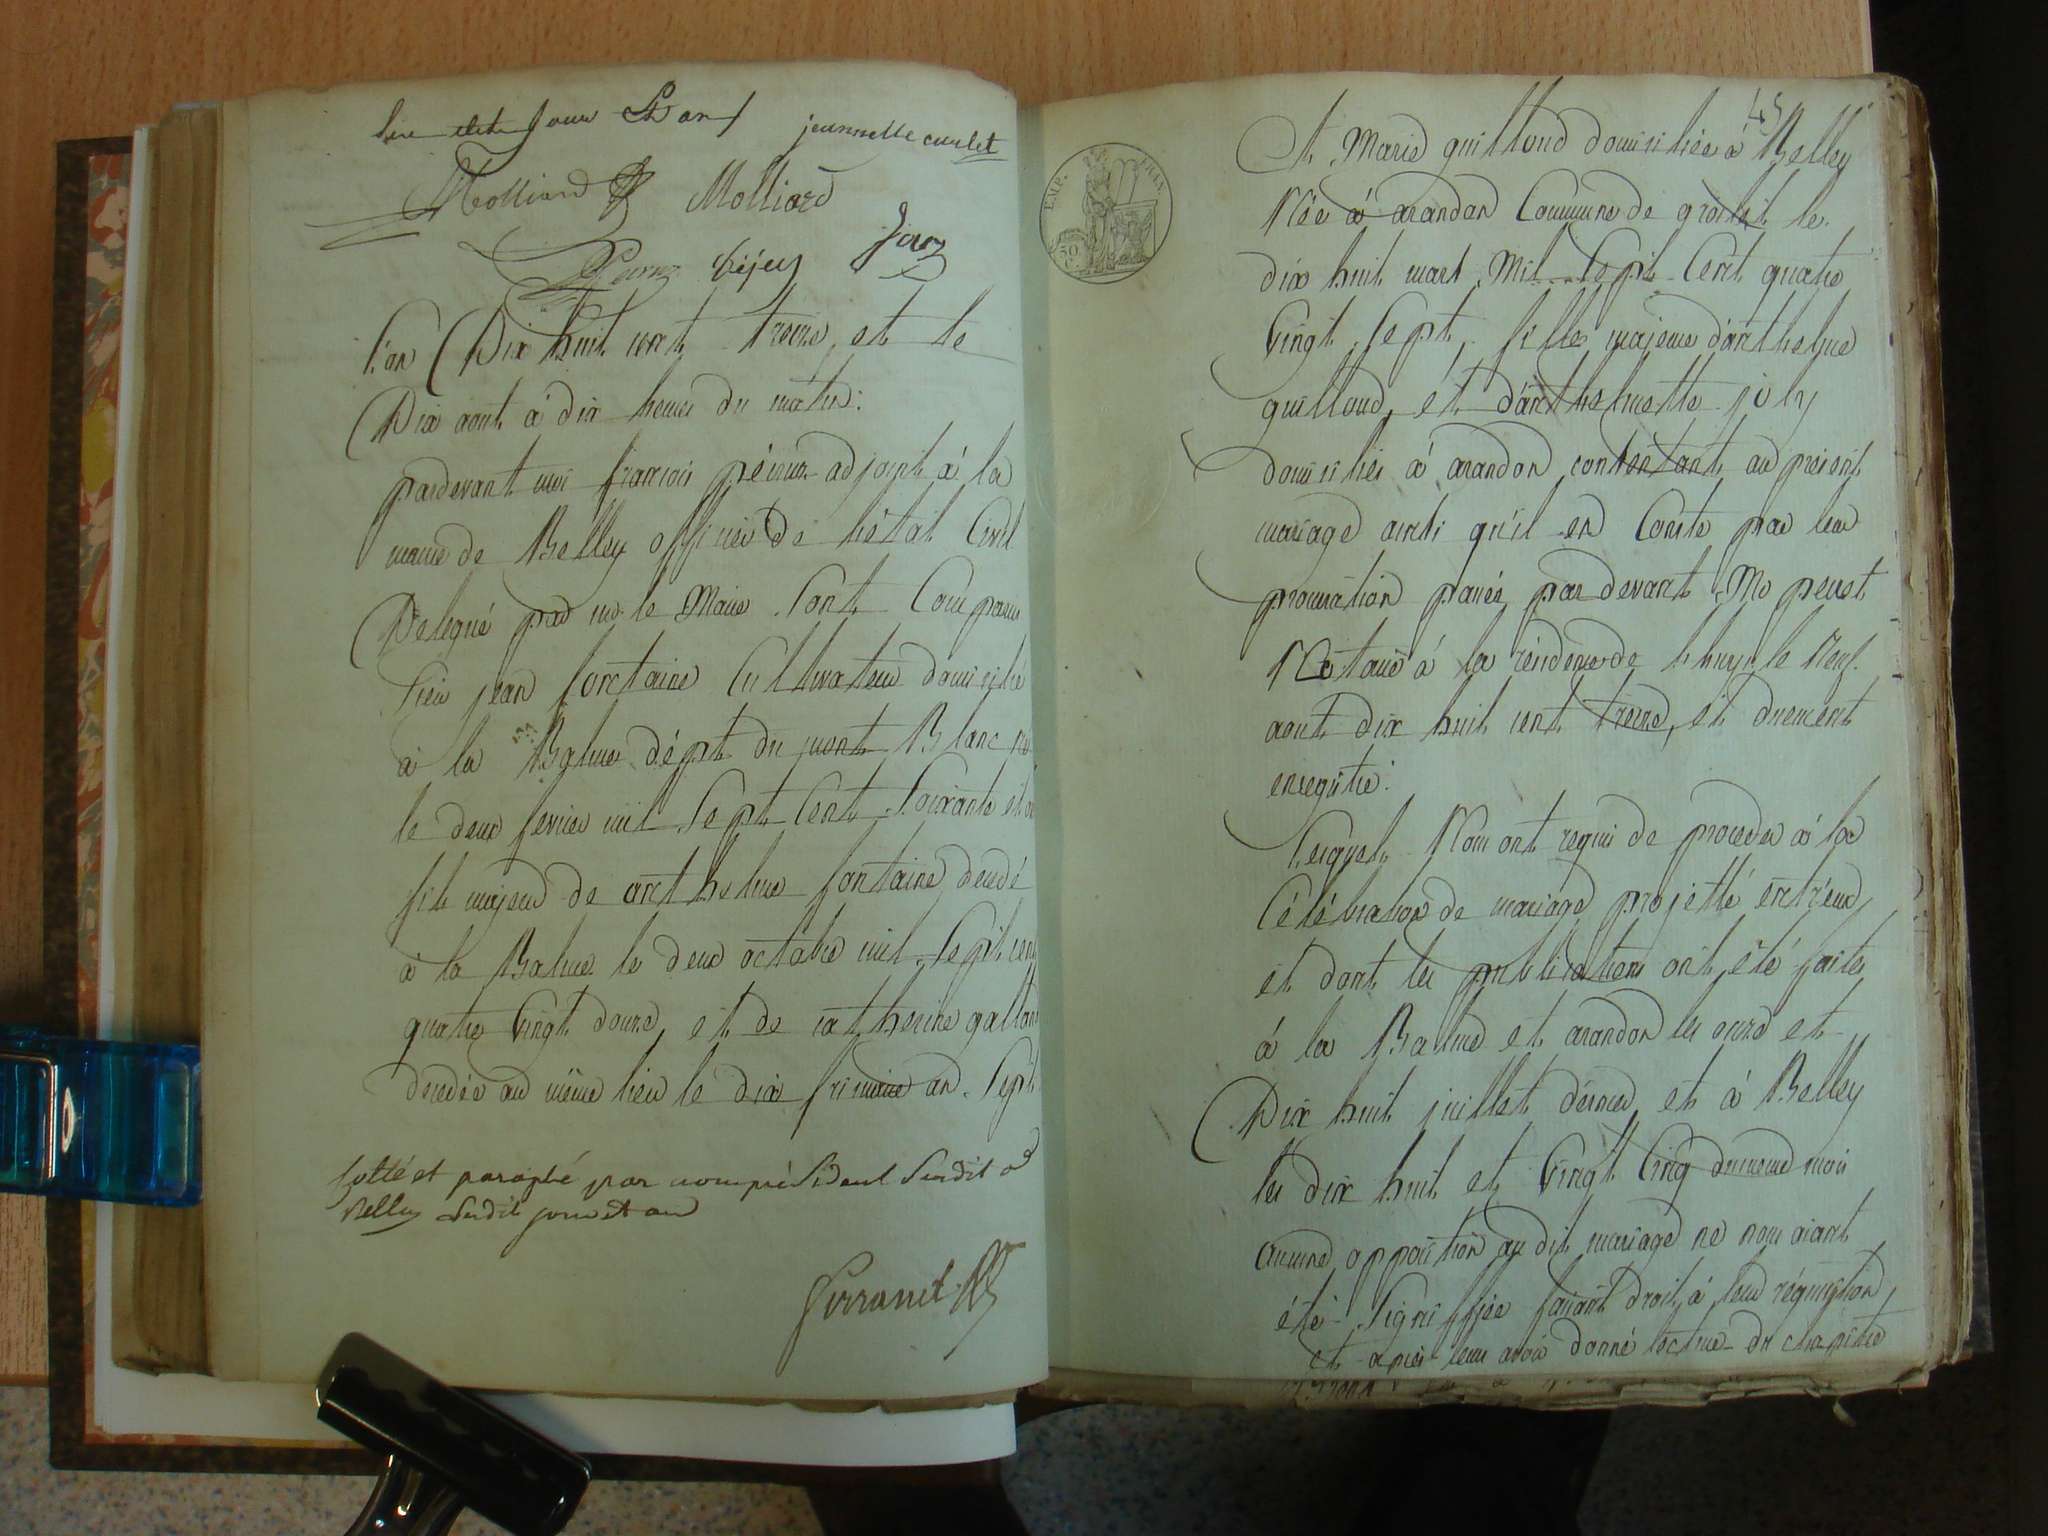 jeannette curlet
Molliard Molliard
l'an Dix huit cent treize et le
Dix aout à dix heures du matin:
pardevant moi françois adjoint à la
mairie de Belley officier de l'état Civil
Delegué par mr le Maire Sont Comparus
Sieur jean fontaine Cultivateur domicilié
à la Balme dépt du mont Blanc né
le deux fevrier mil Sept Cent Soixante et
fils majeur de anthelme fontaine decedé
à la Balme le deux octobre mil Sept cent
quatre Vingt douze, et de catherine galland
decedée au même lieu le dix frimaire an Sept
Cotté et paraphé par nous président Susdit a
Belley Susdits jour et an
45
Et Marie guilloud domiciliée à Belley
Née à arandon Commune de groslet le
dix huit mars Mil Sept Cent quatre
Vingt Sept, fille majeure d'anthelme
guilloud, et d'anthelmette joly
domiciliés à arandon consentant au present
mariage ainsi qu'il en Conste par leur
procuration passée par devant Me
Notaire à la residence de lhuys le Neuf
aout dix huit cent treize, et duement
enregistré.
Lesquels Nous ont requis de proceder à la
Célébration de mariage projetté entr'eux
et dont les publications ont été faites
à la Balme et arandon les onze et
Dix huit juillet dernier et à Belley
les dix huit et Vingt Cinq du meme mois
aucune opposition au dit mariage ne nous aiant
été Signiffiée faisant droit à leur réquisition
et après leur avoir donné lecture du chapitre
EMP. FRAN.
50